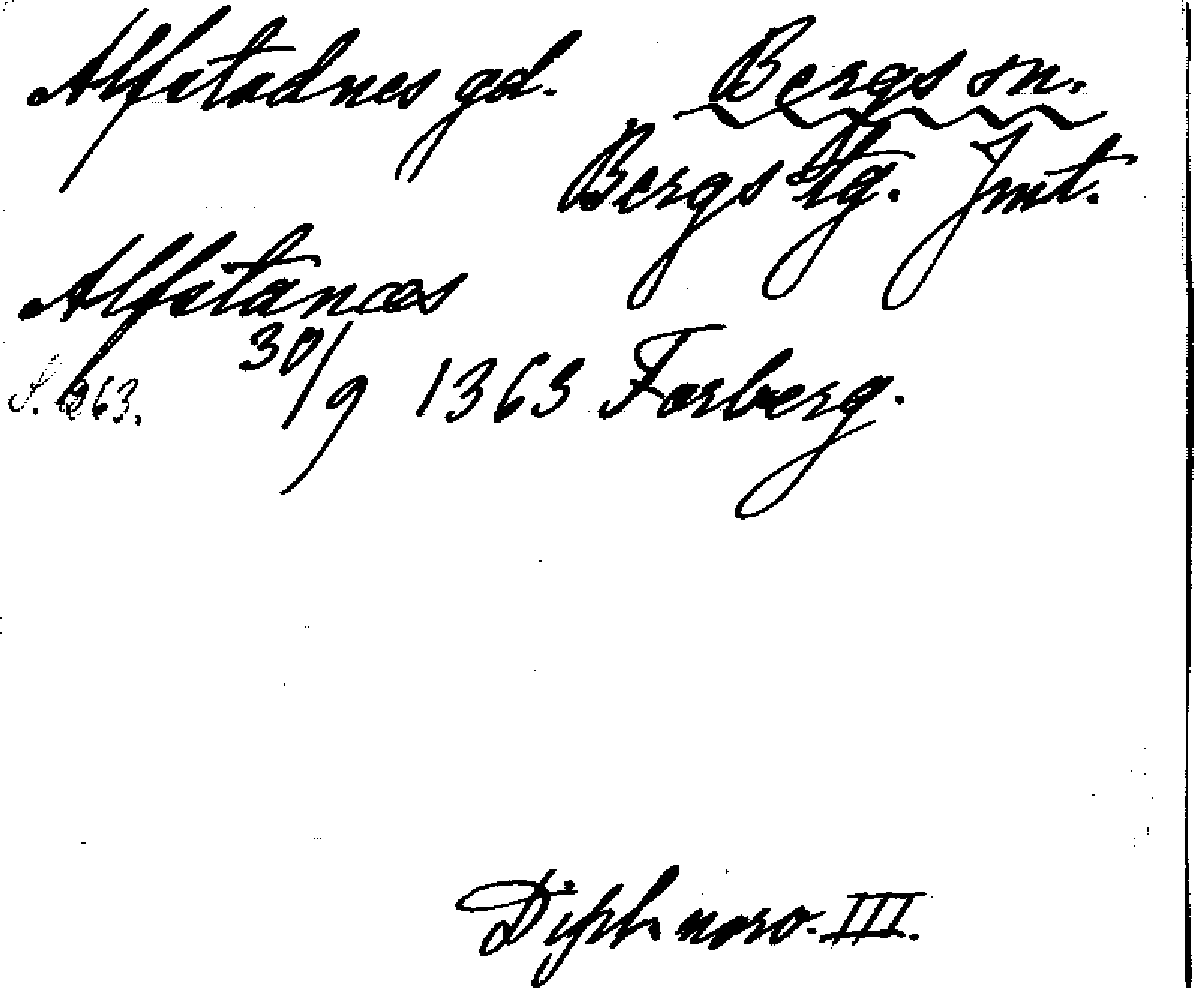 Alfstadnes gd. Bergs sn.
Bergs tg. Jmt.
Alfstanæs
S. 263. 30/9 1363 Forberg.
Dipl. norv. III.